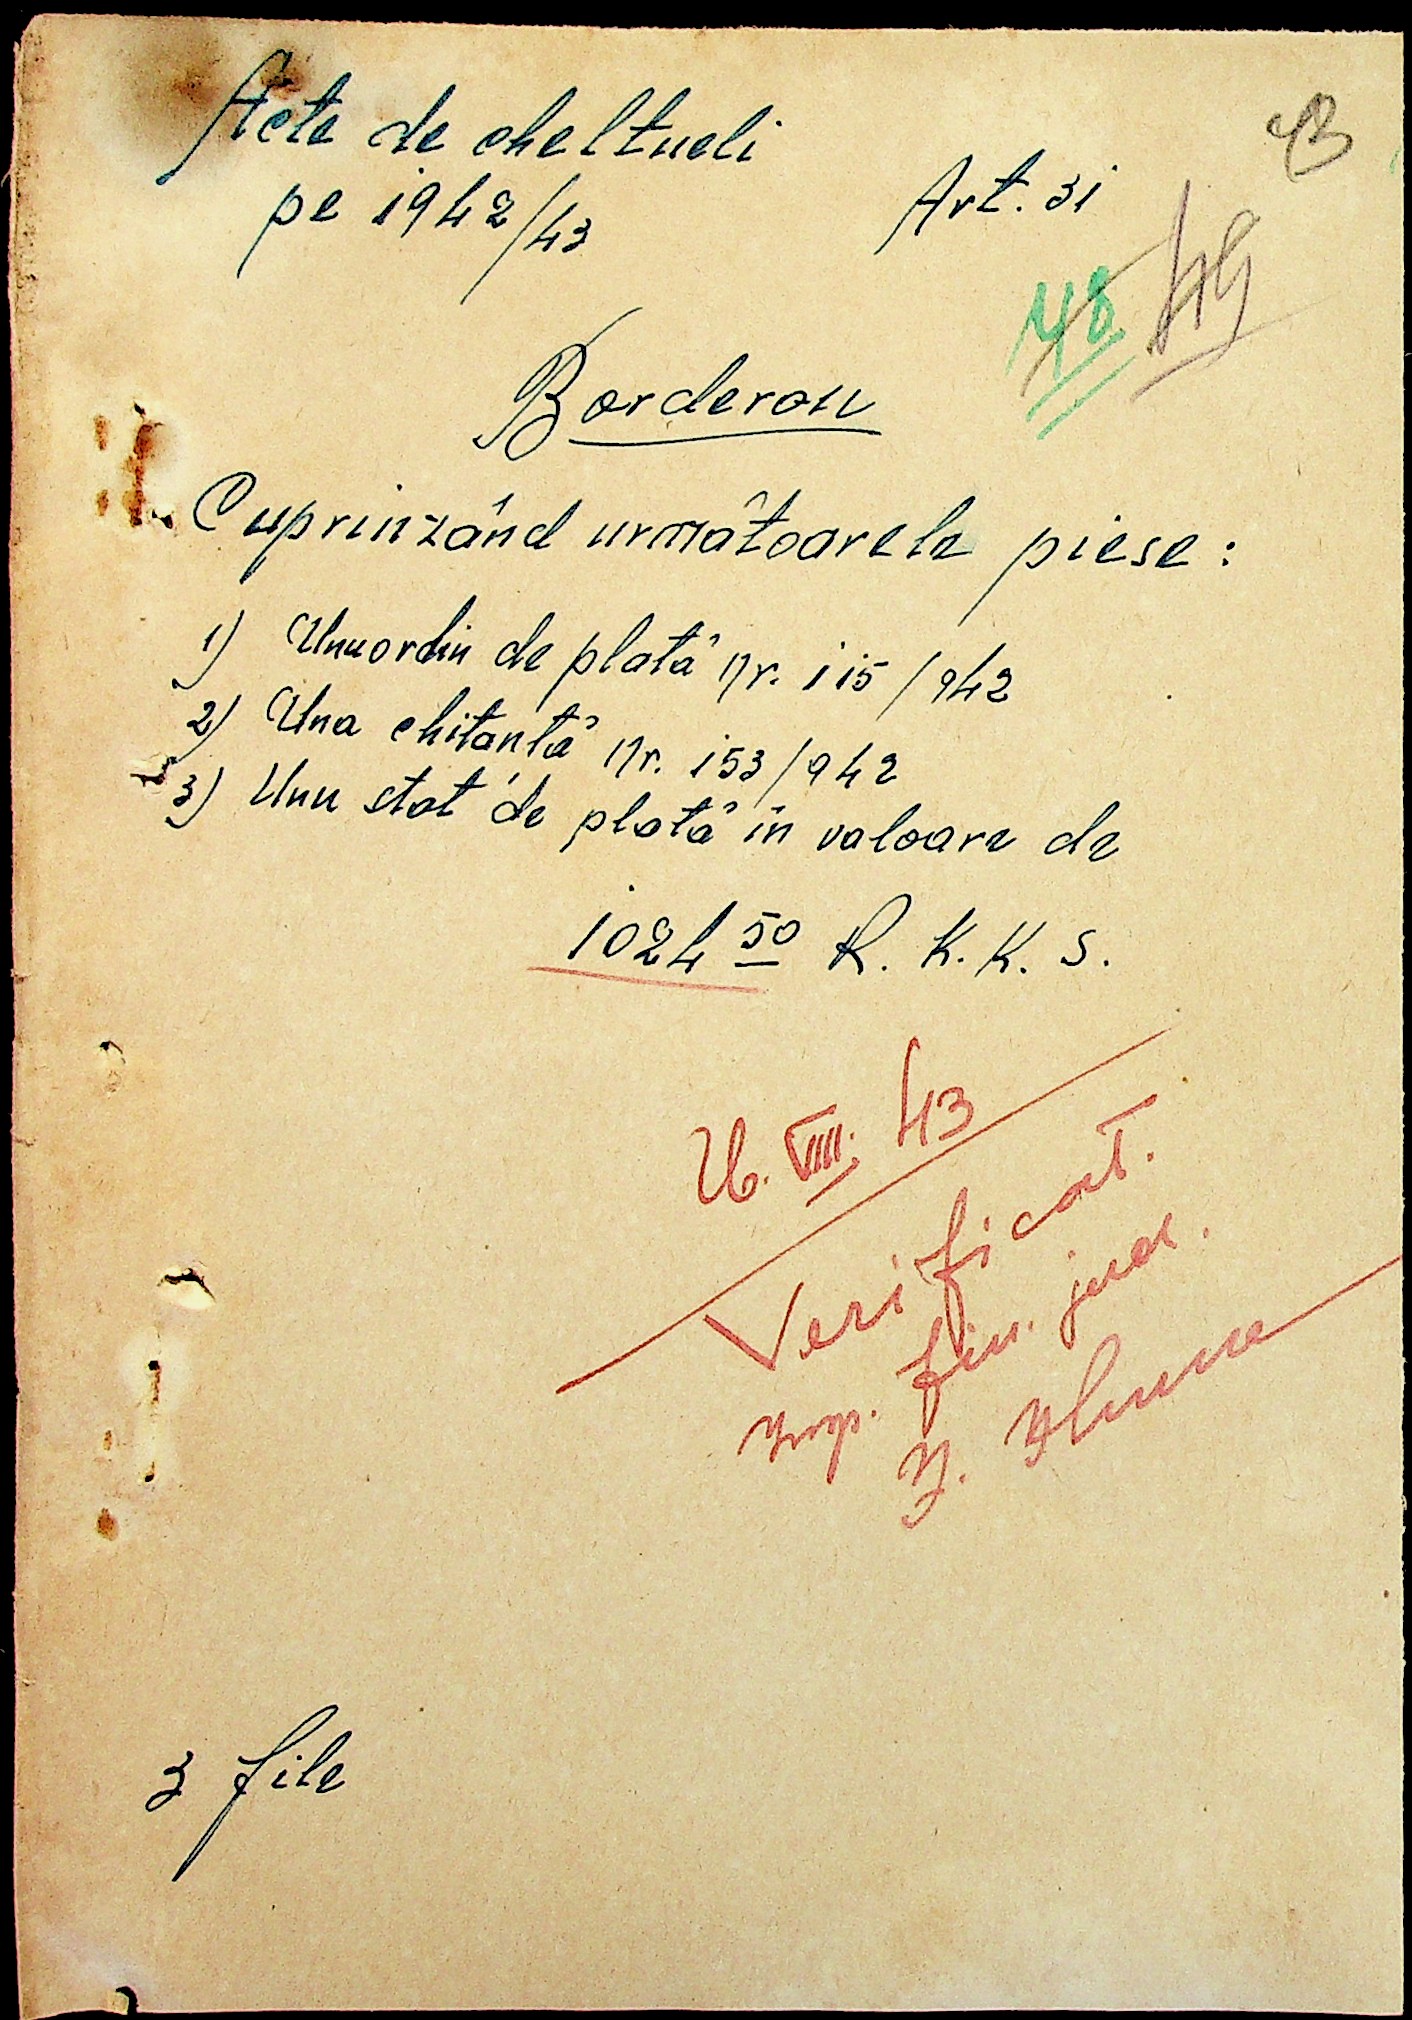 Acte de cheltueli
pe 1942/43
Art. 31
48 49
Borderou
Cuprinzând următoarele piese:
1) Unuordin de plată Nr. 115/942
2) Una chitanță Nr. 153/942
3) Unu stat de plată în valoare de
1024 50 R. K. K. S.
26. VIII. 43
Verificat.
Insp. fin. jud.
3 file